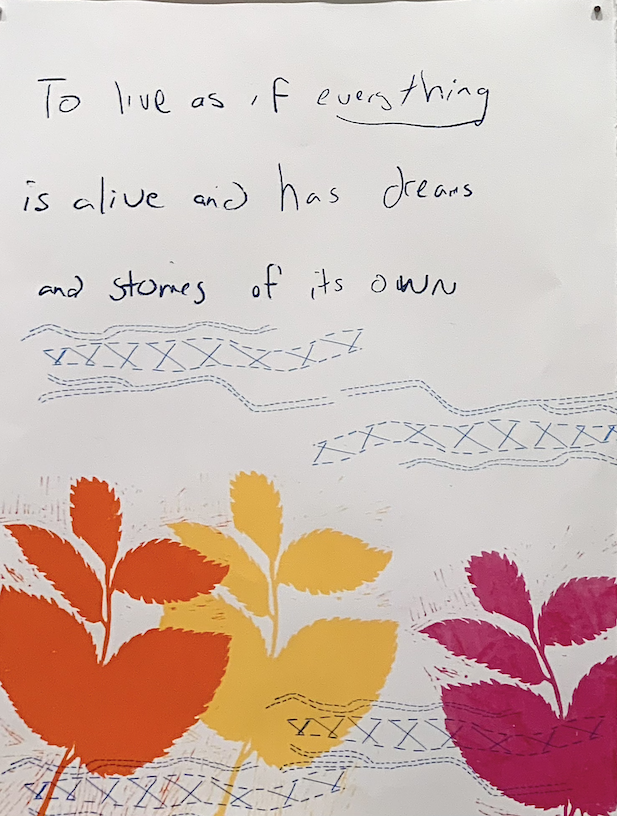 To live as if everything
is alive and has dreams
and stories of its own